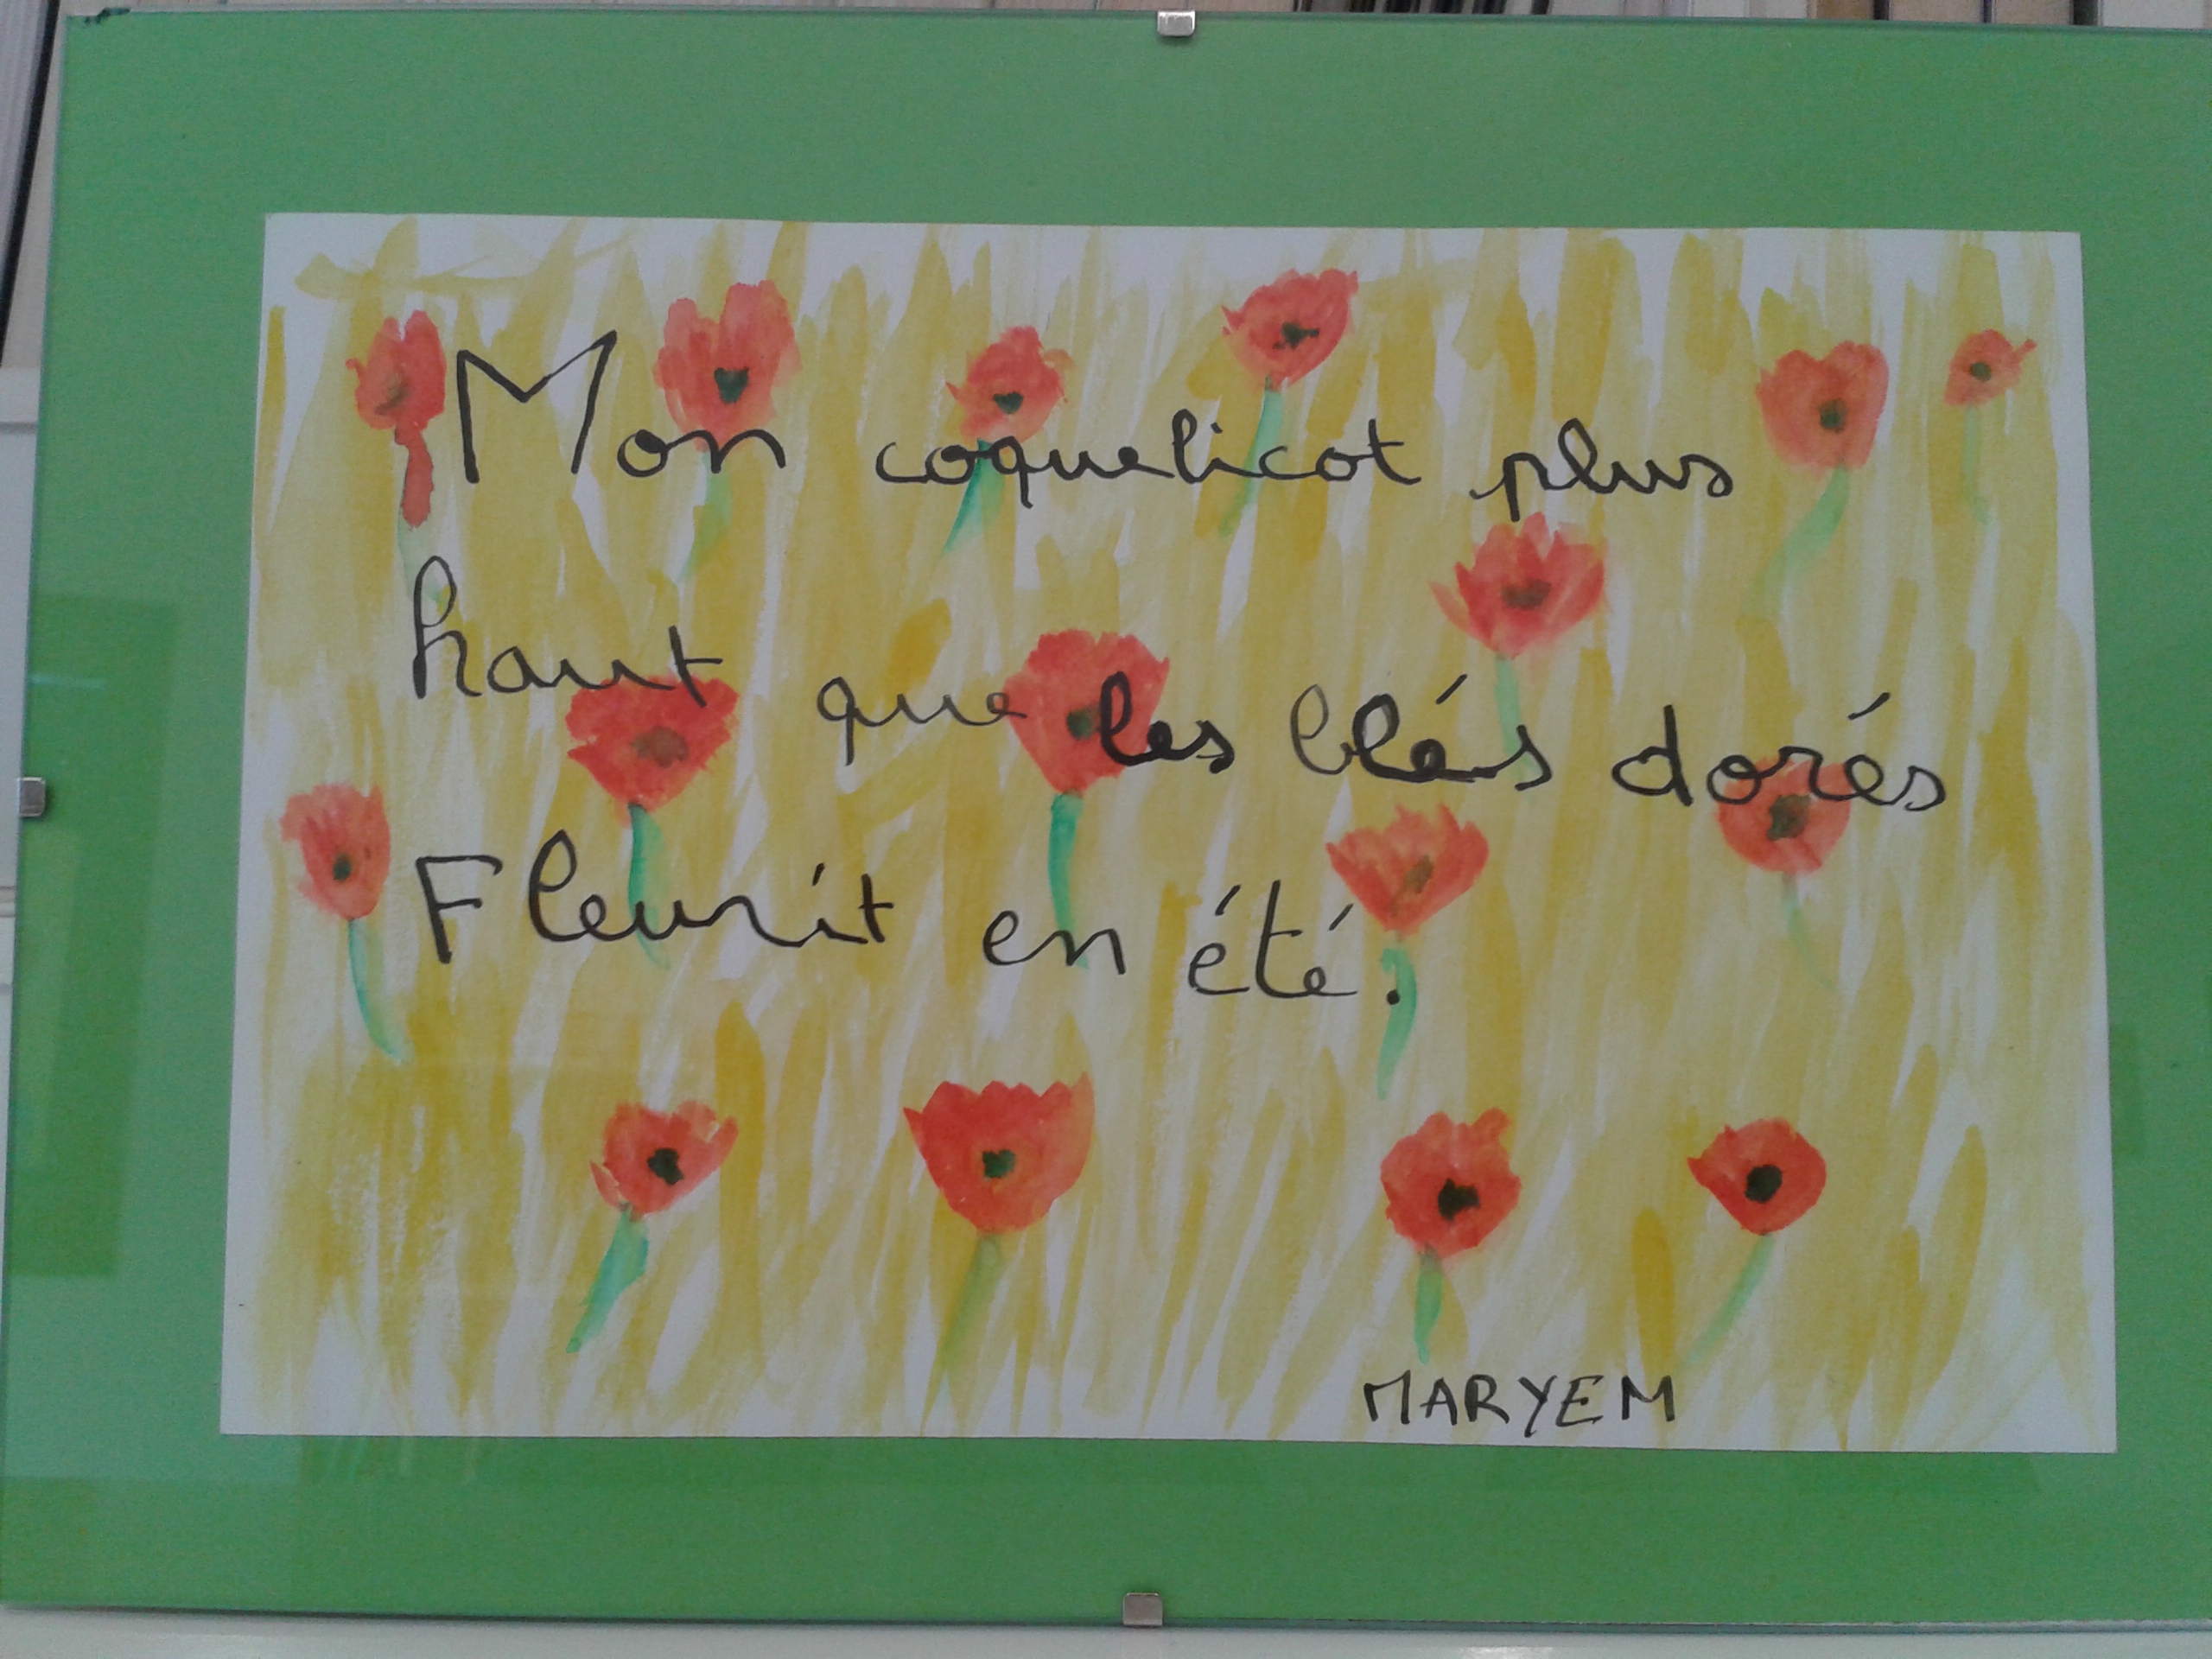 Mon coquelicot plus
haut que les blés dorés
Fleurit en été.
MARYEM